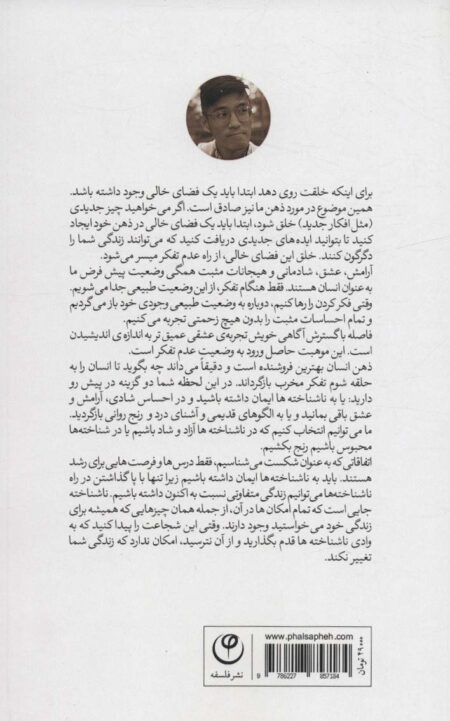 برای اینکه خلقت روی دهد ابتدا باید یک فضای خالی وجود داشته باشد.
همین موضوع در مورد ذهن ما نیز صادق است. اگر می خواهید چیز جدیدی
(مثل افکار جدید) خلق شود، ابتدا باید یک فضای خالی در ذهن خود ایجاد
کنید تا بتوانید ایده‌های جدیدی دریافت کنید که می‌توانند زندگی شما را
دگرگون کنند. خلق این فضای خالی، از راه عدم تفکر میسر می‌شود.
آرامش، عشق، شادمانی و هیجانات مثبت همگی وضعیت پیش فرض ما
به عنوان انسان هستند. فقط هنگام تفکر، از این وضعیت طبیعی جدا می‌شویم.
وقتی فکر کردن را رها کنیم، دوباره به وضعیت طبیعی وجودی خود باز می‌گردیم
و تمام احساسات مثبت را بدون هیچ زحمتی تجربه می‌کنیم.
فاصله با گسترش آگاهی خویش تجربه‌ی عشقی عمیق تر به اندازه‌ی اندیشیدن
است. این موهبت حاصل ورود به وضعیت عدم تفکر است.
ذهن انسان بهترین فروشنده است و دقیقاً می‌داند چه بگوید تا انسان را به
حلقه شوم تفکر مخرب بازگرداند. در این لحظه شما دو گزینه در پیش رو
دارید: یا به ناشناخته ها ایمان داشته باشید و در احساس شادی، آرامش و
عشق باقی بمانید و یا به الگوهای قدیمی و آشنای درد و رنج روانی بازگردید.
ما می‌توانیم انتخاب کنیم که در ناشناخته ها آزاد و شاد باشیم یا در شناخته‌ها
محبوس باشیم رنج بکشیم.
اتفاقاتی که به عنوان شکست می‌شناسیم، فقط درس‌ها و فرصت‌هایی برای رشد
هستند. باید به ناشناخته‌ها ایمان داشته باشیم زیرا تنها با پا گذاشتن در راه
ناشناخته‌ها می‌توانیم زندگی متفاوتی نسبت به اکنون داشته باشیم. ناشناخته
جایی است که تمام امکان ها در آن، از جمله همان چیزهایی که همیشه برای
زندگی خود می‌خواستید وجود دارند. وقتی این شجاعت را پیدا کنید که به
وادی ناشناخته ها قدم بگذارید و از آن نترسید، امکان ندارد که زندگی شما
تغییر نکند.
www.phalsapheh.com
۴۹۰۰۰ تومان
نشر فلسفه
9 786227 857184